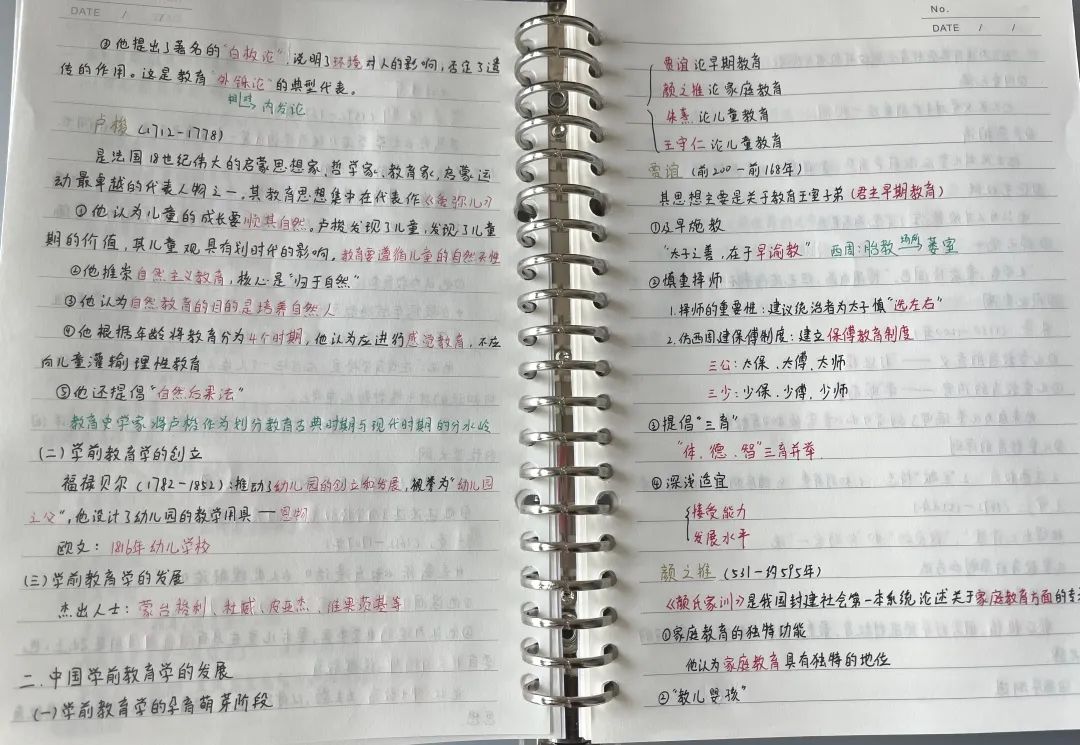 DATE / /
②他提出了著名的“白板论”,说明了环境对人的影响,否定了遗
传的作用。这是教育“外铄论”的典型代表。
相对→内发论
卢梭(1712-1778)
是法国18世纪伟大的启蒙思想家、哲学家、教育家,启蒙运
动最卓越的代表人物之一,其教育思想集中在代表作《爱弥儿》
①他认为儿童的成长要顺其自然。卢梭发现了儿童,发现了儿童
期的价值,其儿童观具有划时代的影响,教育要遵循儿童的自然天性
②他推崇自然主义教育,核心是“归于自然”
③他认为自然教育的目的是培养自然人
④他根据年龄将教育分为4个时期,他认为应进行感觉教育,不应
向儿童灌输理性教育
⑤他还提倡“自然后果法”
教育史学家将卢梭作为划分教育古典时期与现代时期的分水岭
(二)学前教育学的创立
福禄贝尔(1782-1852):推动了幼儿园的创立和发展,被誉为“幼儿园
之父”,他设计了幼儿园的教学用具——恩物
欧文:1816年幼儿学校
(三)学前教育学的发展
杰出人士:蒙台梭利、杜威、皮亚杰、维果茨基等
二.中国学前教育学的发展
(一)学前教育学的孕育萌芽阶段
No.
DATE / /
贾谊论早期教育
颜之推论家庭教育
朱熹论儿童教育
王守仁论儿童教育
贾谊(前200-前168年)
其思想主要是关于教育王室子弟(君主早期教育)
①及早施教
“太子之善,在于早谕教” 西周:胎教场所→蒌室
②慎重择师
1.择师的重要性:建议统治者为太子慎“选左右”
2.仿西周建保傅制度:建立保傅教育制度
三公:太保、太傅、太师
三少:少保、少傅、少师
③提倡“三育”
“体、德、智”三育并举
④深浅适宜
接受能力
发展水平
颜之推(531-约595年)
《颜氏家训》是我国封建社会第一本系统论述关于家庭教育方面的专
①家庭教育的独特功能
他认为家庭教育具有独特的地位
②“教儿婴孩”